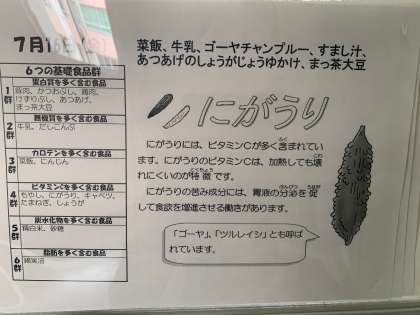 7月1
菜飯、牛乳、ゴーヤチャンプルー、すまし汁、
あつあげのしょうがじょうゆかけ、まっ茶大豆
6つの基礎食品群
1群
蛋白質を多く含む食品
豚肉、かつおぶし、鶏肉、
けずりぶし、あつあげ、
まっ茶大豆
2群
無機質を多く含む食品
牛乳、だしこんぶ
3群
カロテンを多く含む食品
菜飯、にんじん
4群
ビタミンCを多く含む食品
もやし、にがうり、キャベツ、
たまねぎ、しょうが
5群
炭水化物を多く含む食品
精白米、砂糖
6群
脂肪を多く含む食品
綿実油
にがうり
にがうりには、ビタミンCが多く含まれてい
ます。にがうりのビタミンCは、加熱しても壊
れにくいのが特徴です。
にがうりの苦み成分には、胃液の分泌を促
して食欲を増進させる働きがあります。
「ゴーヤ」、「ツルレイシ」とも呼ば
れています。